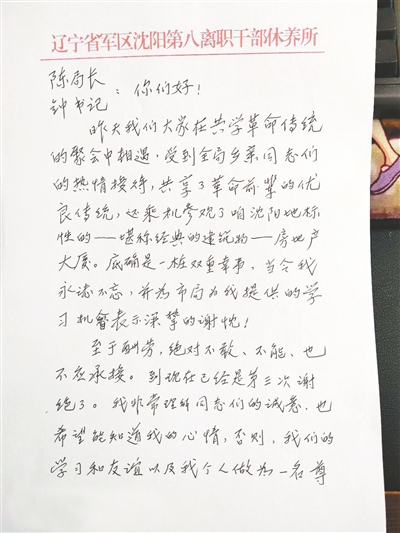 辽宁省军区沈阳第八离职干部休养所
陈局长
钟书记：你们好！
昨天我们大家在共学革命传统
的聚会中相遇，受到全局乡亲同志们
的热情接待，共享了革命前辈的优
良传统，还乘机参观了咱沈阳地标
性的——堪称经典的建筑物——房地产
大厦。底确是一桩双重幸事，当令我
永志不忘，并为市局为我提供的学
习机会表示深挚的谢忱！
至于酬劳，绝对不敢、不能、也
不应承接。到现在已经是第三次谢
绝了。我非常理解同志们的诚意，也
希望能知道我的心情，否则，我们的
学习和友谊以及我个人做为一名尊